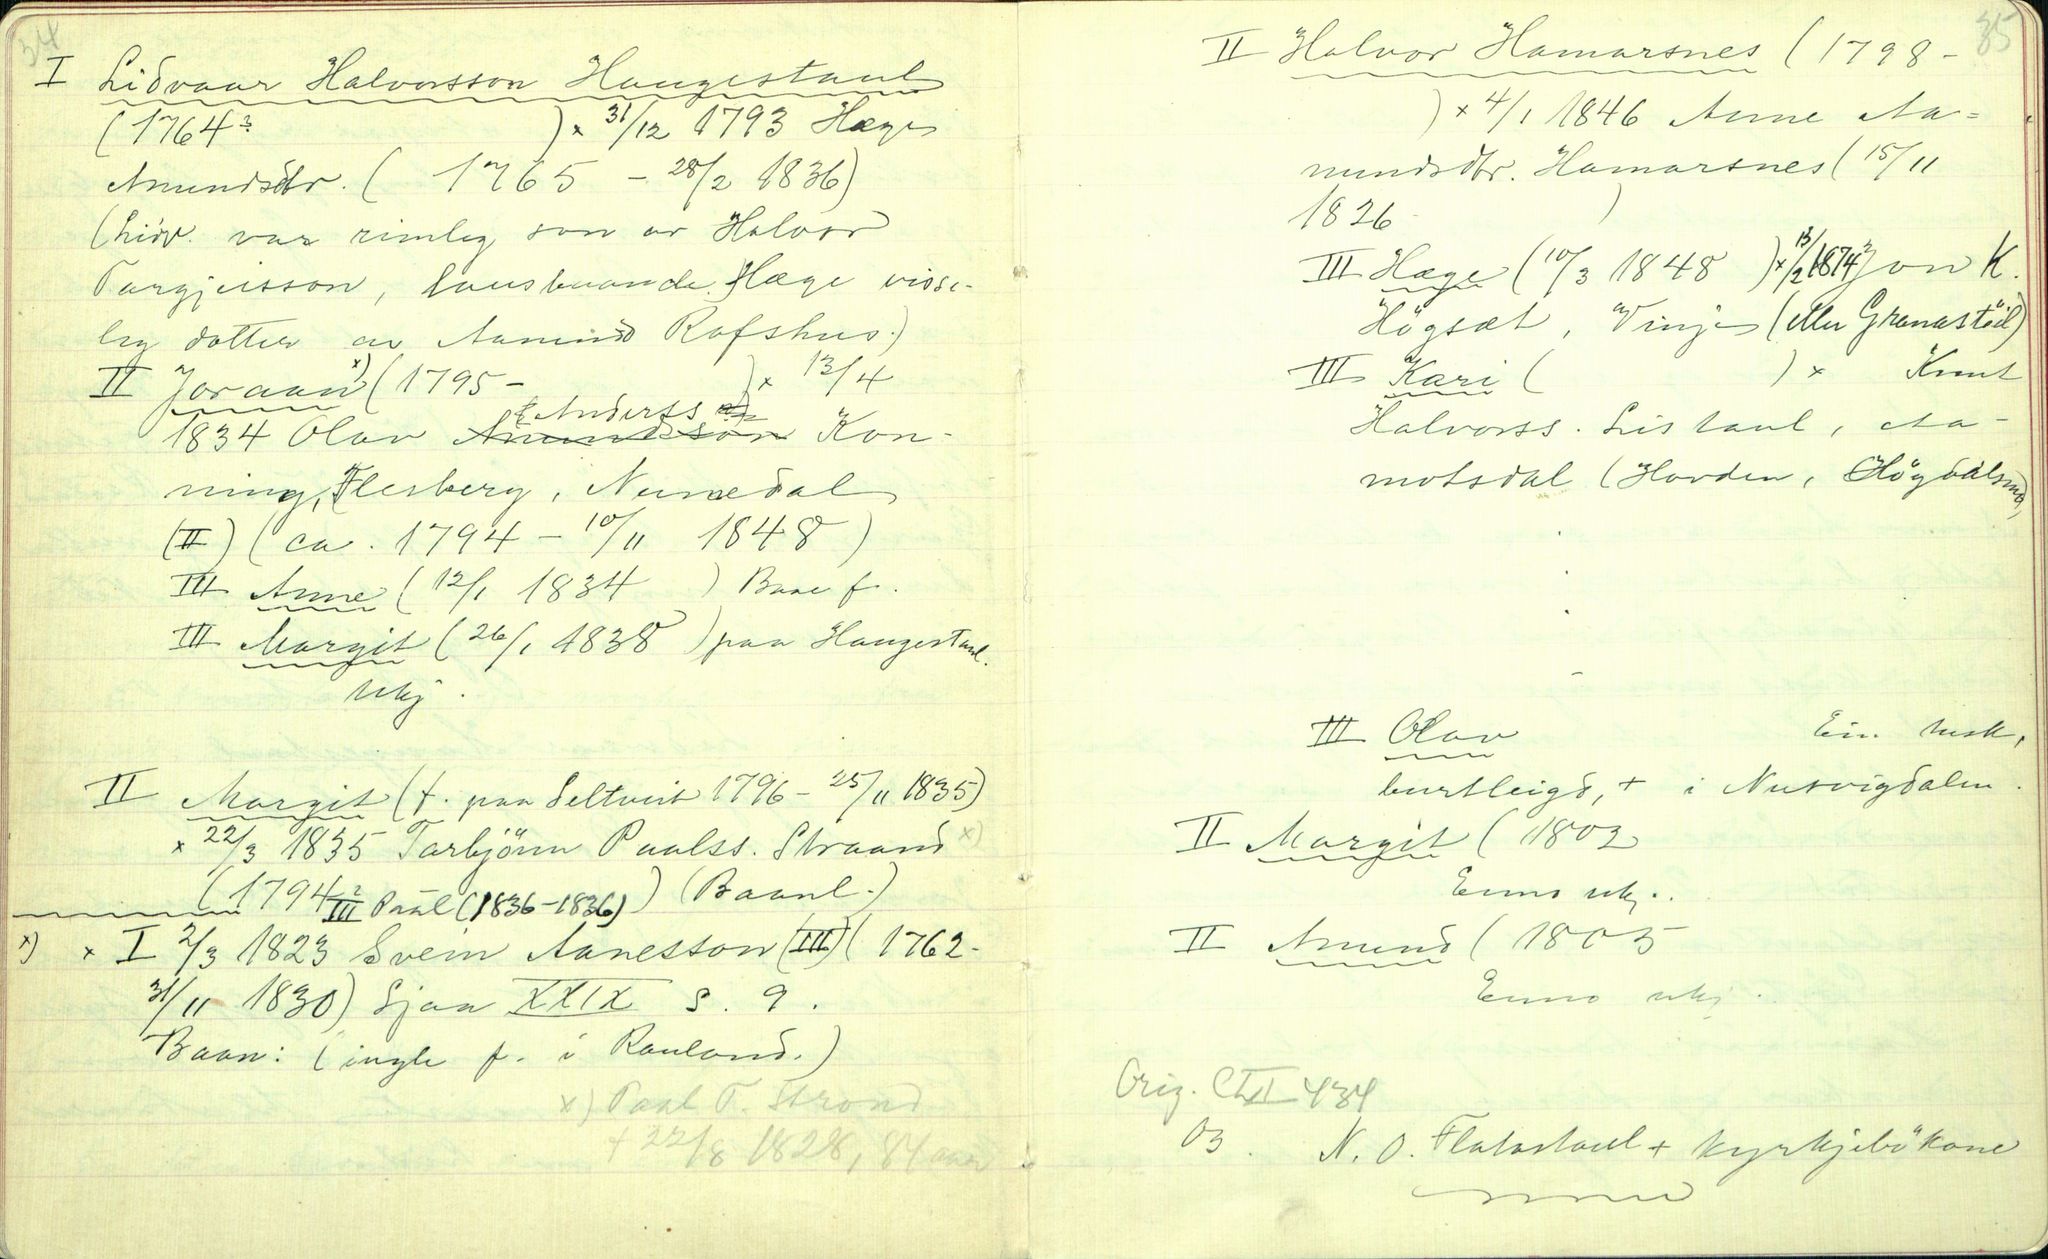 34
I Lidvaar Halvorsson Haugestaul
(1764? ) × 31/12 1793 Hæge
Amundsdtr. ( 1765 – 28/2 1836)
(Lidv. var rimleg son av Halvor
Targjeisson, lausbuande. Hæge visse-
leg dotter av Aamund Rafshus.)
II Joraan x) (1795 – ) × 13/4
1834 Olav Anderss. Kon-
ning, Flesberg, Numedal
(II) (ca. 1794 – 10/11 1848)
III Anne (12/1 1834 ) Baae f.
III Margit (26/1 1838 ) paa Haugestaul.
ukj.
II Margit (f. paa Seltveit 1796 – 25/11 1835)
× 22/3 1835 Tarbjörn Paalss. Straand x)
(1794? ) (Baanl.)
III Paal (1836–1836)
x) × I 2/3 1823 Svein Aanesson (III) (1762-
31/11 1830) Sjaa XXIX s. 9.
Baan: (ingle f. i Rauland.)
x) Paal T. Strond
+ 22/8 1828, 84 aar
35
II Halvor Hamarsnes (1798 –
) × 4/1 1846 Anne Aa-
mundsdtr. Hamarsnes (15/11
1826 )
III Hæge (10/3 1848 ) × 13/2 1874? Jon K.
Högsæt, Vinje (eller Granastöil)
III Kari ( ) × Knut
Halvorss. Listaul, Aa-
motsdal (Hovden, Högdalsmo)
III Olav Ein tusk,
burtleigd, + i Nutvigdalen.
II Margit (1802
Enno ukj.
II Amund (1805
Enno ukj.
Orig. CLII 434
03. N. O. Flatastaul + kyrkjebökane